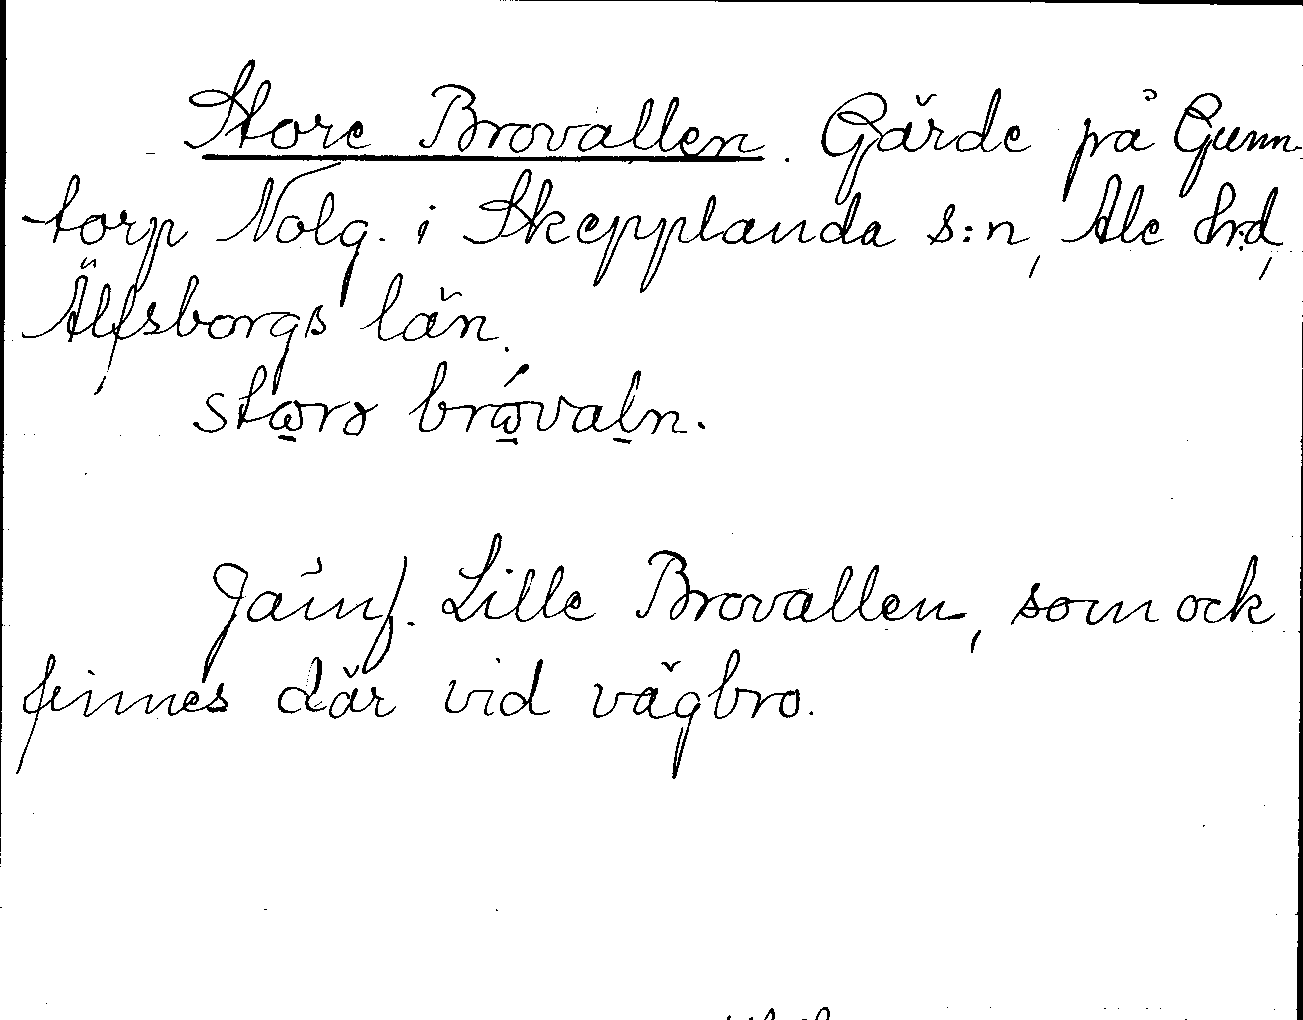 Store Brovallen. Gärde på Gunn-
torp Nolg. i Skepplanda s:n, Ale h:d,
Älfsborgs län.
Jämf. Lille Brovallen, som ock
finnes där vid vägbro.